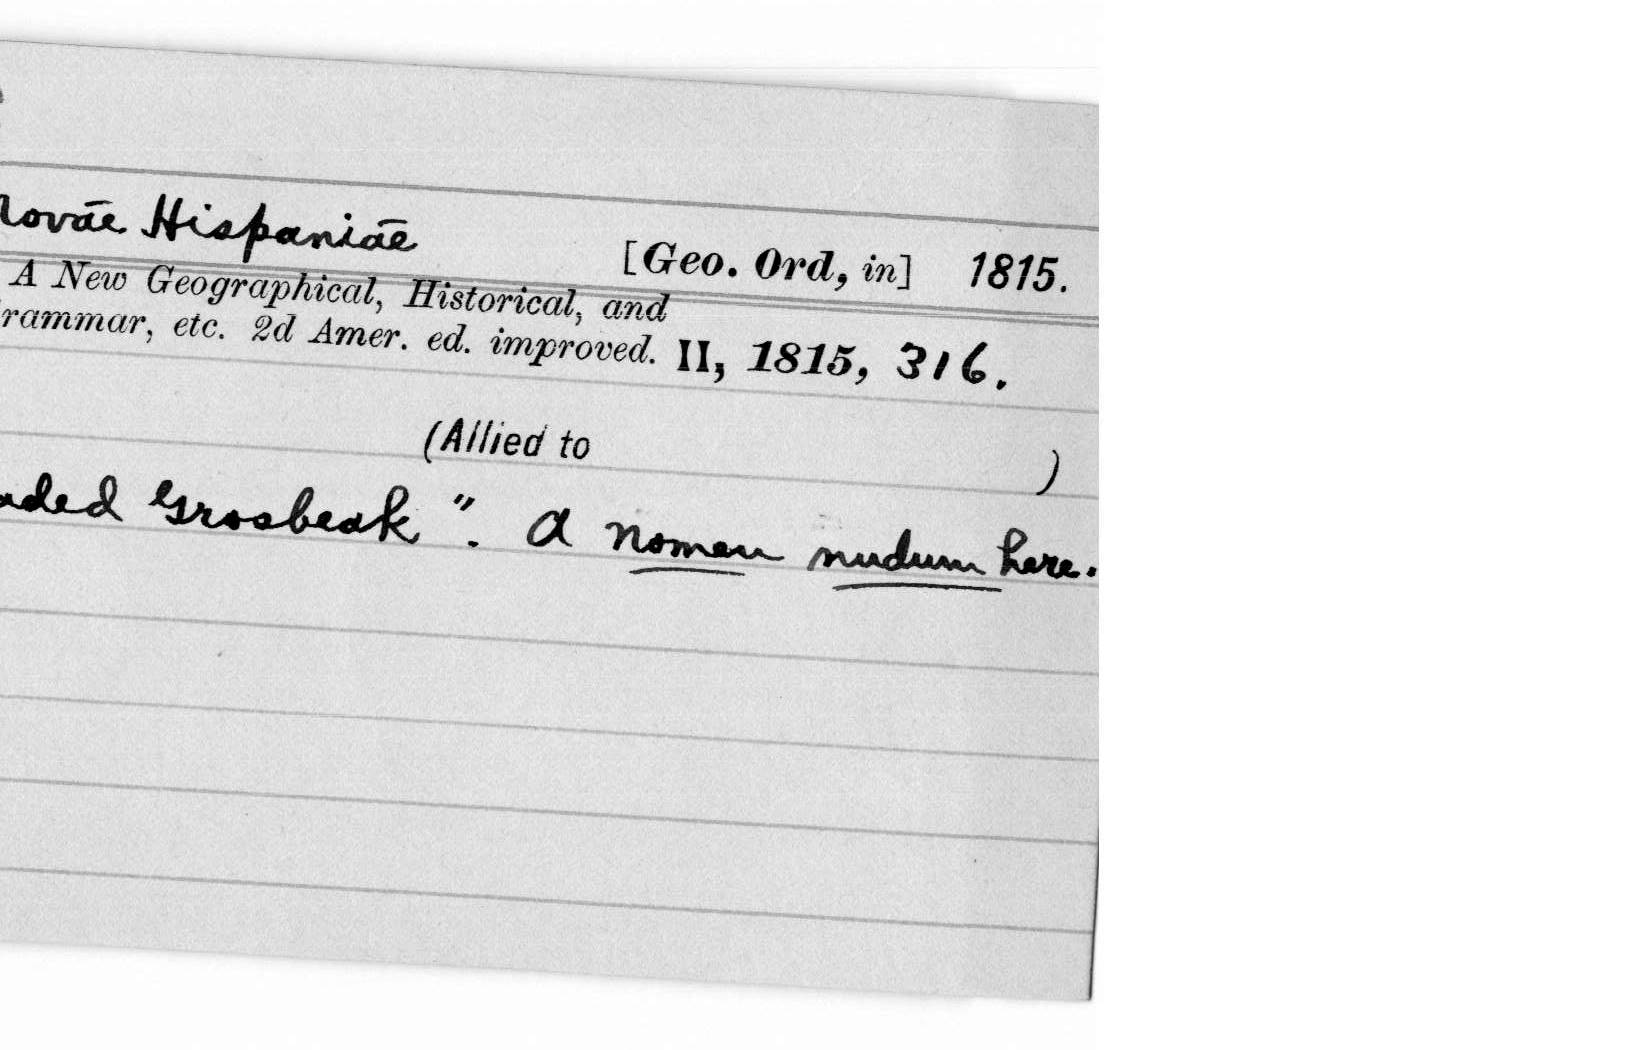 Novae Hispaniae [Geo. Ord, in] 1815.
A New Geographical, Historical, and
rammar, etc. 2d Amer. ed. improved. II, 1815, 316.
(Allied to )
aded Grosbeak". A nomen nudum here.